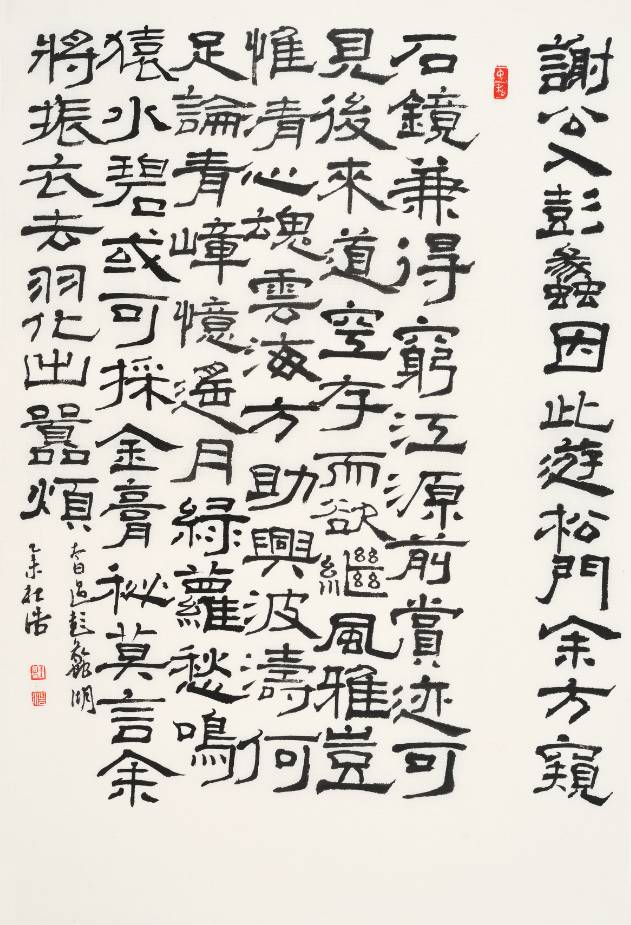 謝公入彭蠡因此遊松門余方窺
石鏡兼得窮江源前賞迹可
見後來道空存而欲繼風雅豈
惟清心魂雲海方助興波濤何
足論青嶂憶遙月綠蘿愁鳴
猿水碧或可採金膏秘莫言余
將振衣去羽化出囂煩
過彭蠡湖
乙未杜浩